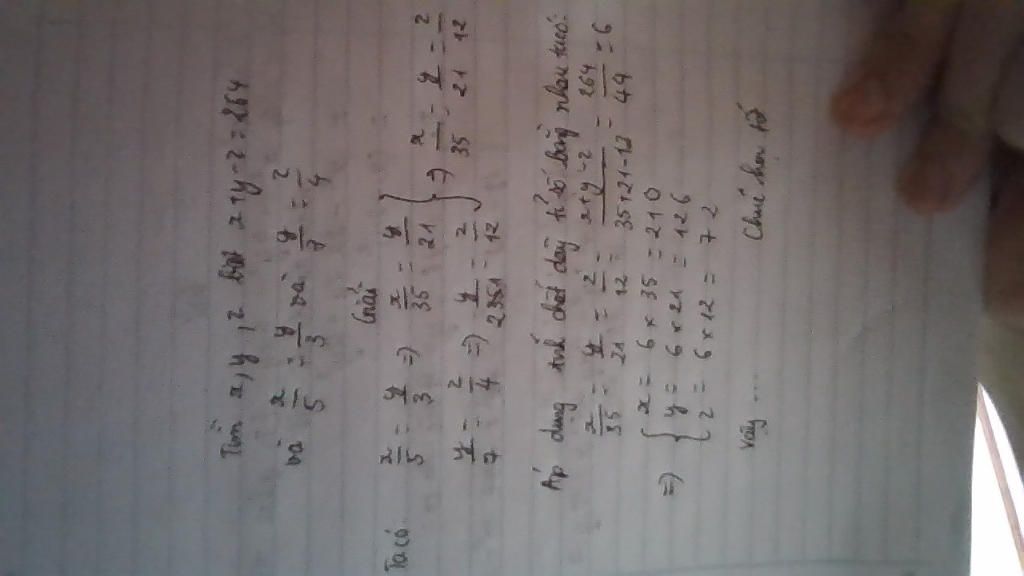 Tìm x, y, z biết x+y-z=264
và x/5 = y/3 và y/7 = z/4
Giải
Ta có x/5 = y/3 => x/35 = y/21
y/7 = z/4 => y/21 = z/12 } => x/35 = y/21 = z/12
Áp dụng tính chất dãy tỉ số bằng nhau
x/35 = y/21 = z/12 = x+y-z/35+21-12 = 264/44 = 6
=> { x = 6 x 35 = 210
y = 6 x 21 = 126
z = 6 x 12 = 72
Vậy ... Chúc học tốt